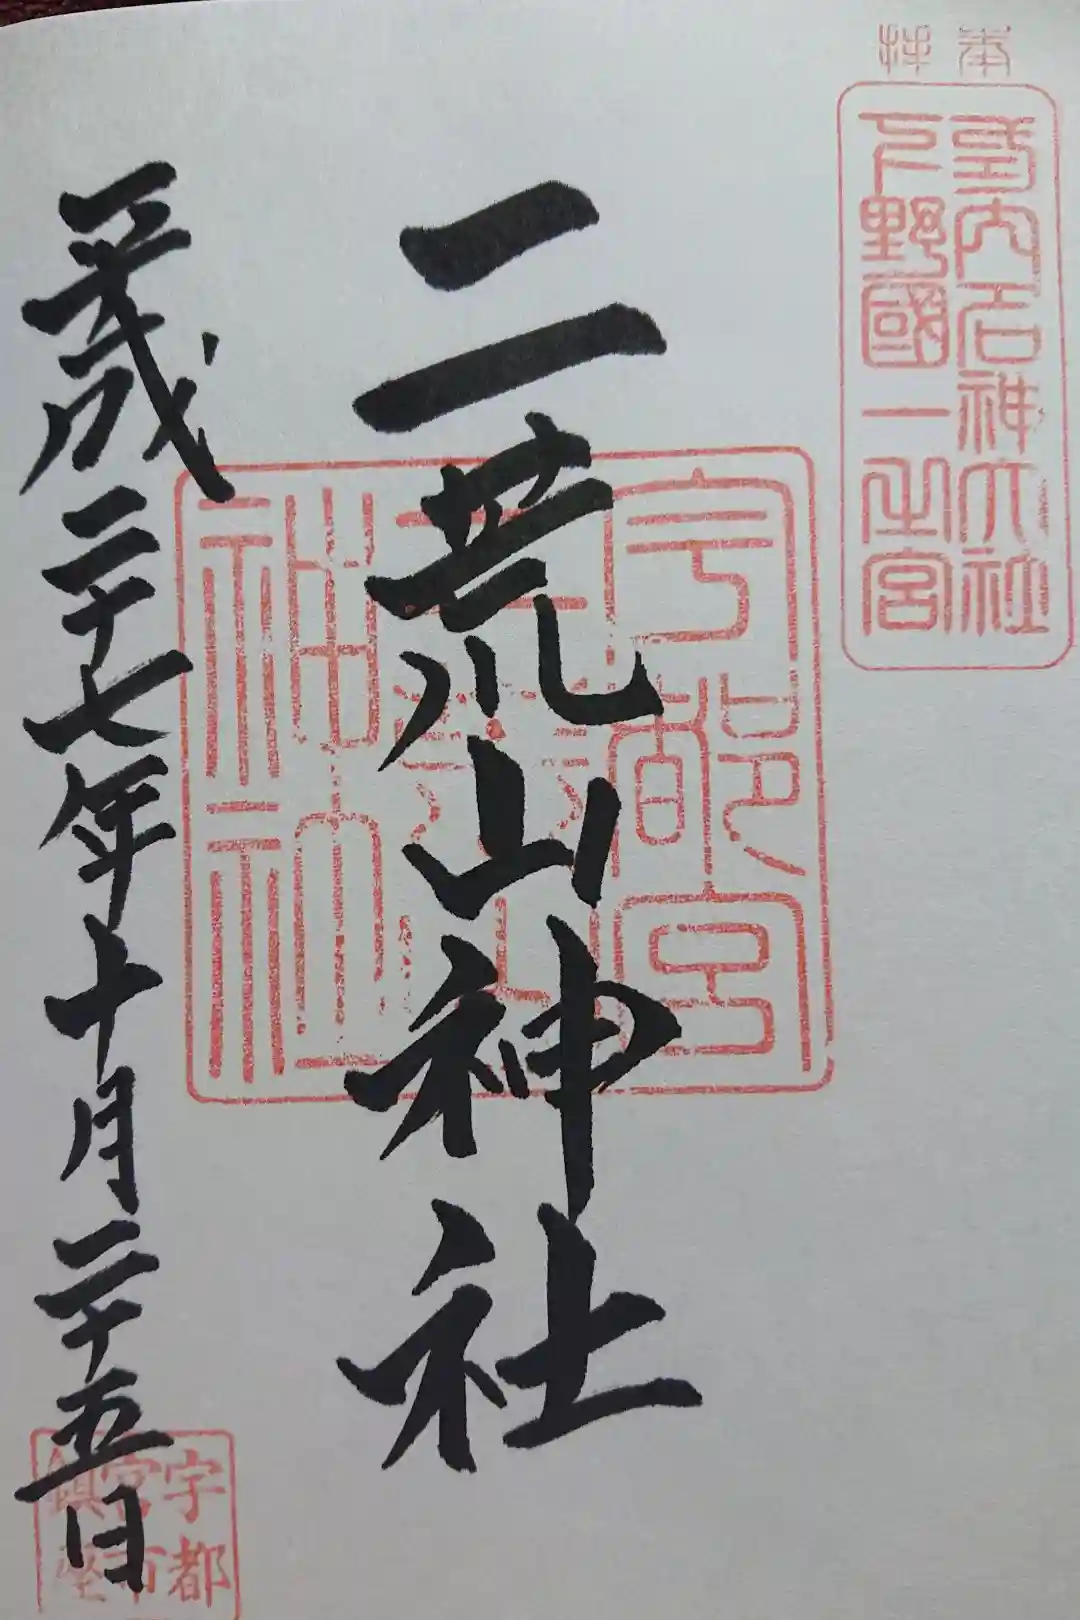 奉拝
式内名神大社
下野國一之宮
二荒山神社
宇都宮
二荒山
神社
平成二十七年十月二十五日
宇都
宮市
鎮座